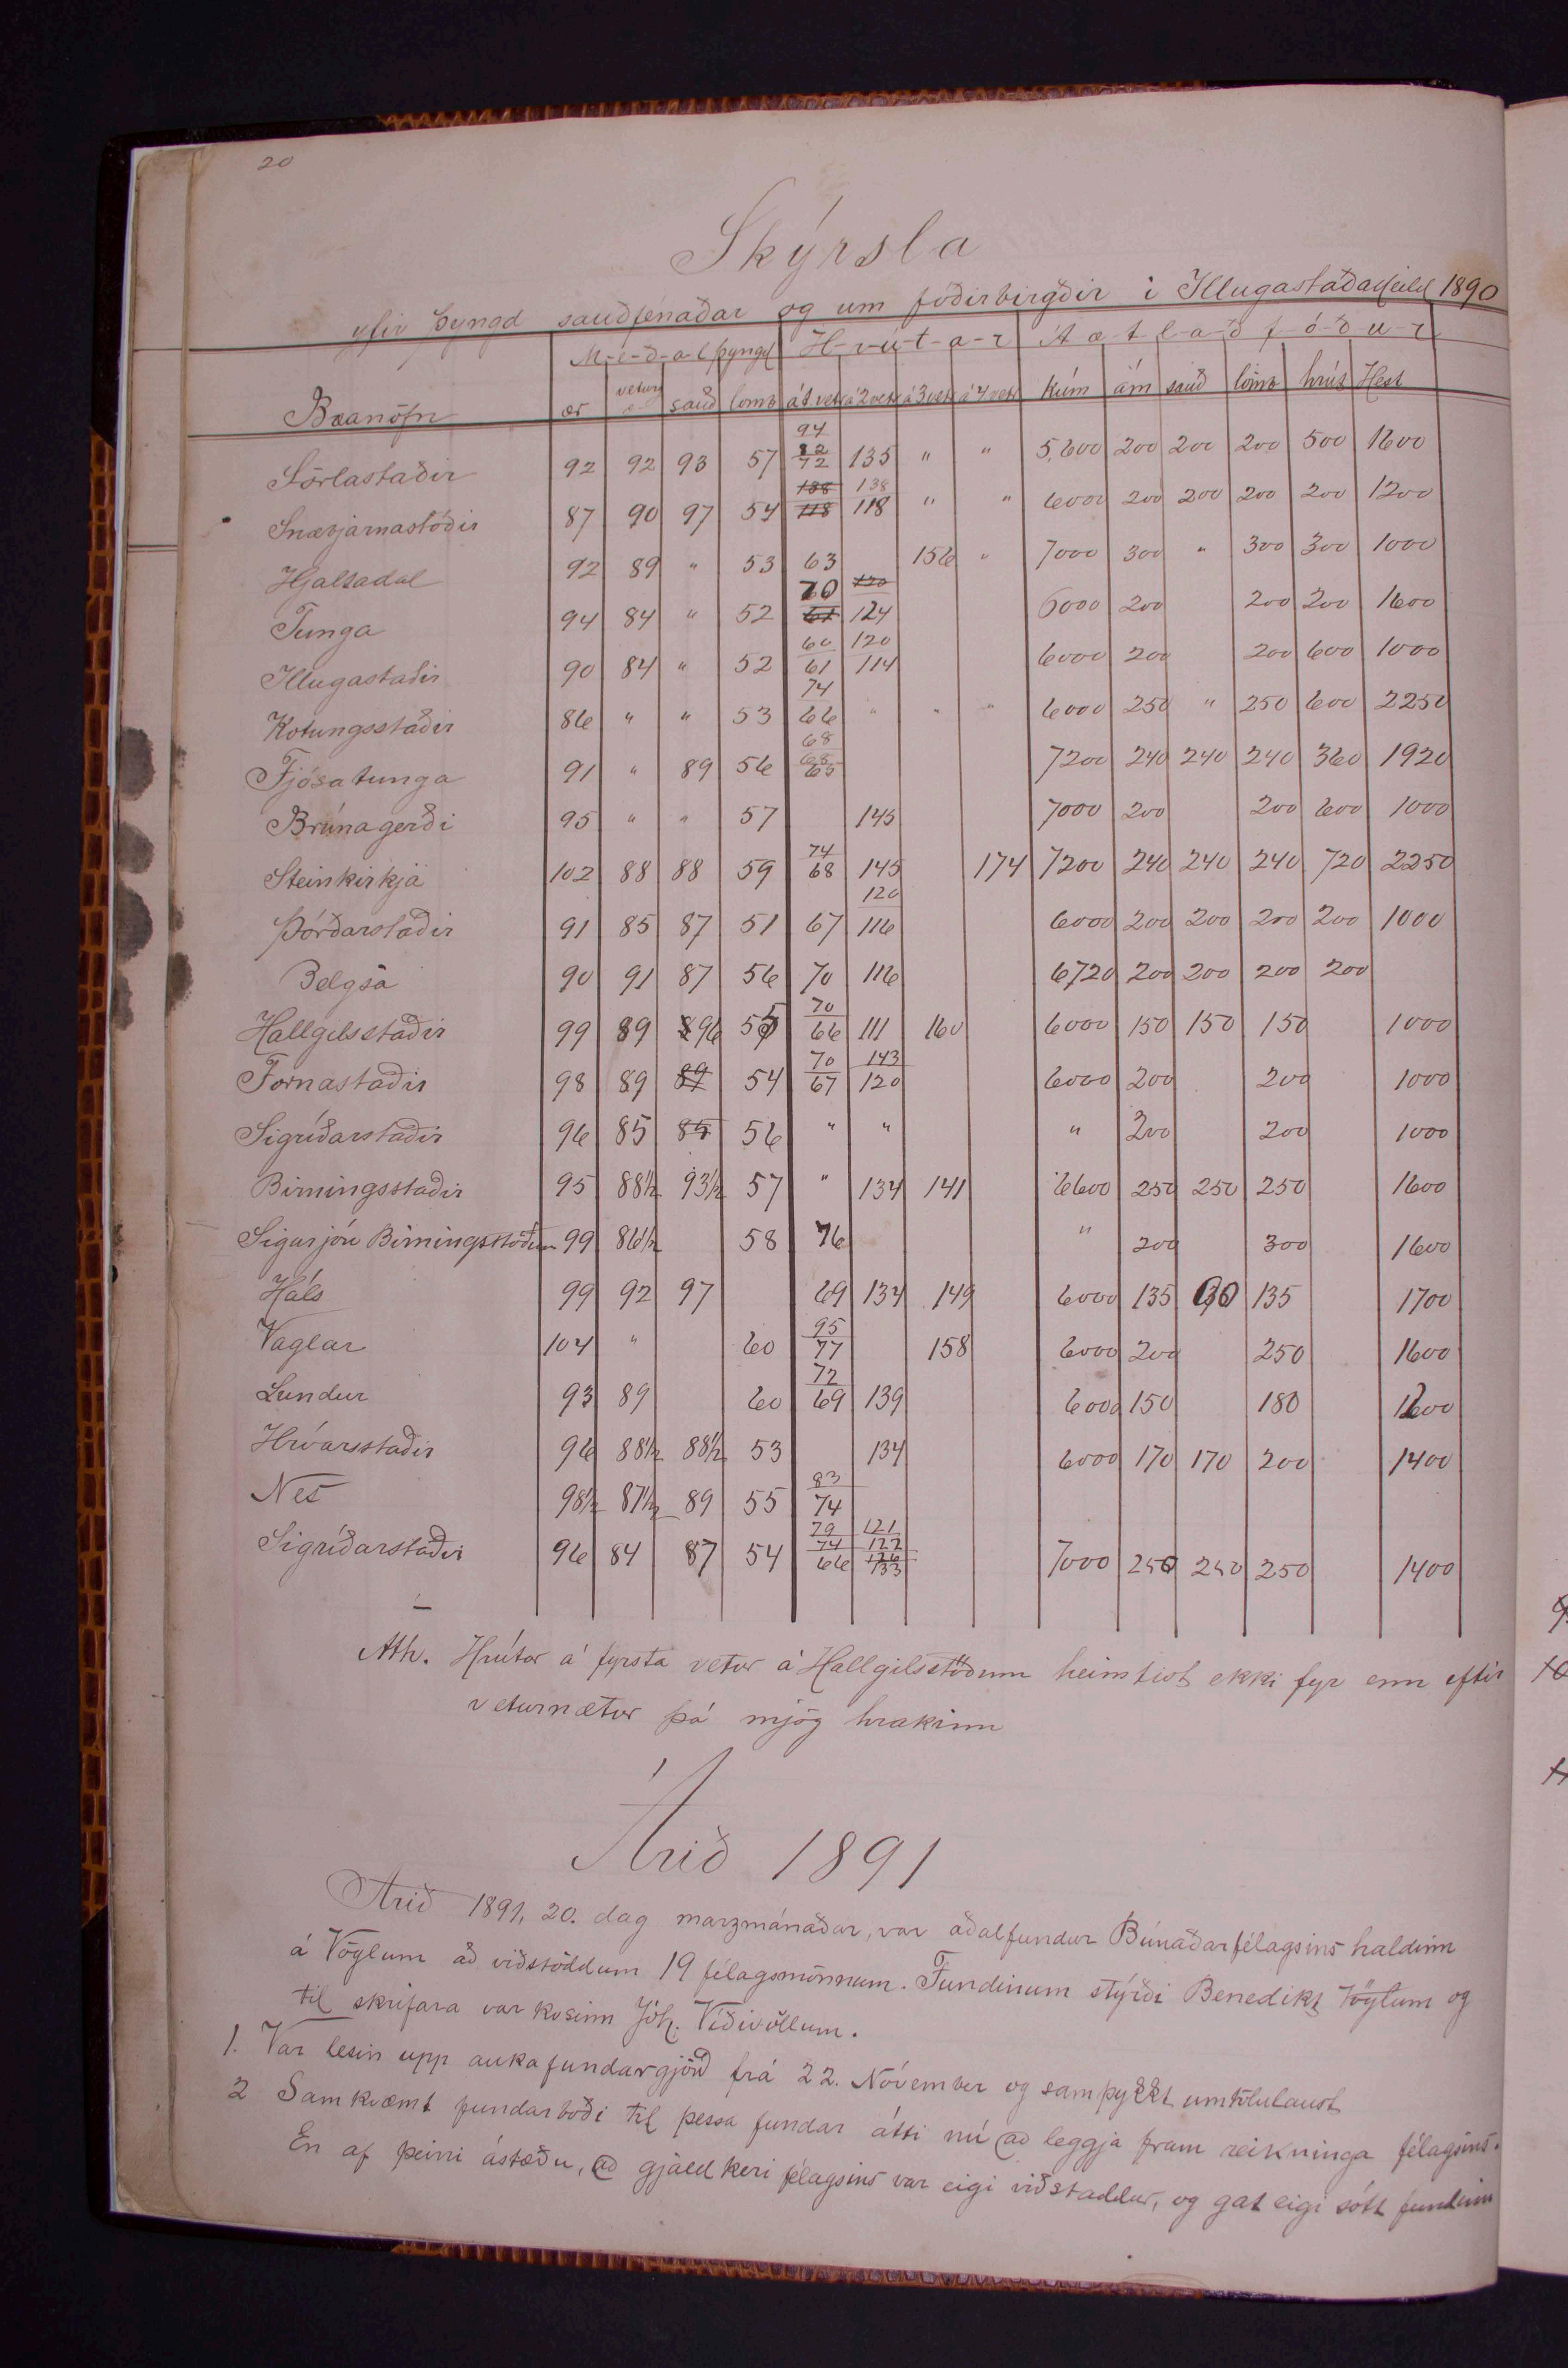 20
Skýrsla
yfir þyngd sauðfénaðar og um fóðirbirgðir i Illugastaðadeild 1890
M-e-ð-a-l þyngd H-r-ú-t-a-r Á æ-t-l-a-ð f-ó-ð-u-r
Bæanöfn ær veturg æ sauð lömb á 1 vetr á 2 vetr á 3 vetr á 4 vetr kúm ám sauð lömb hrút Hest
Sörlastaðir 92 92 93 57 94 82 72 135 " " 5,600 200 200 200 500 1600
Snæbjarnastöðir 87 90 97 54 138 118 138 118 " " 6000 200 200 200 200 1200
Hjaltadal 92 89 " 53 63 156 " 7000 300 " 300 300 1000
Tunga 94 84 " 52 70 61 120 124 6000 200 200 200 1600
Illugastaðir 90 84 " 52 60 61 120 114 6000 200 200 600 1000
Kotungsstaðir 86 " " 53 74 66 " " " 6000 250 " 250 600 2250
Fjósatunga 91 " 89 56 68 68 65 7200 240 240 240 360 1920
Brúnagerði 95 " " 57 145 7000 200 200 600 1000
Steinkirkja 102 88 88 59 74 68 145 174 7200 240 240 240 720 2250
Þórðarstaðir 91 85 87 51 67 120 116 6000 200 200 200 200 1000
Belgsá 90 91 87 56 70 116 6720 200 200 200 200
Hallgilsstaðir 99 89 96 55 70 66 111 160 6000 150 150 150 1000
Fornastaðir 98 89 89 54 70 67 143 120 6000 200 200 1000
Sigríðarstaðir 96 85 85 56 " " " 200 200 1000
Birningsstaðir 95 88½ 93½ 57 " 134 141 6600 250 250 250 1600
Sigurjón Birningsstöðum 99 86½ 58 76 " 200 300 1600
Háls 99 92 97 69 134 149 6000 135 90 135 1700
Vaglar 104 " 60 95 77 158 6000 200 250 1600
Lundur 93 89 60 72 69 139 6000 150 180 1200
Hróarsstaðir 96 88½ 88½ 53 134 6000 170 170 200 1400
Nes 98½ 87½ 89 55 83 74
Sigríðarstaðir 96 84 87 54 79 74 66 121 122 126 133 7000 250 250 250 1400
Ath. Hrútar á fyrsta vetur á Hallgilsstöðum heimtist ekki fyr enn eftir
veturnætur þá mjög hrakinn
Árið 1891
Árið 1891, 20. dag marzmánaðar, var aðalfundur Búnaðarfélagsins haldinn
á Vöglum að viðstöddum 19 félagsmönnum. Fundinum stýrði Benedikt Vöglum og
til skrifara var kosinn Jóh. Víðivöllum.
1. Var lesin upp aukafundargjörð frá 22. Nóvember og samþykkt umtölulaust
2 Samkvæmt fundarboði til þessa fundar átti nú að leggja fram reikninga félagsins.
En af þeirri ástæðu, að gjaldkeri félagsins var eigi viðstaddur, og gat eigi sótt fundinn